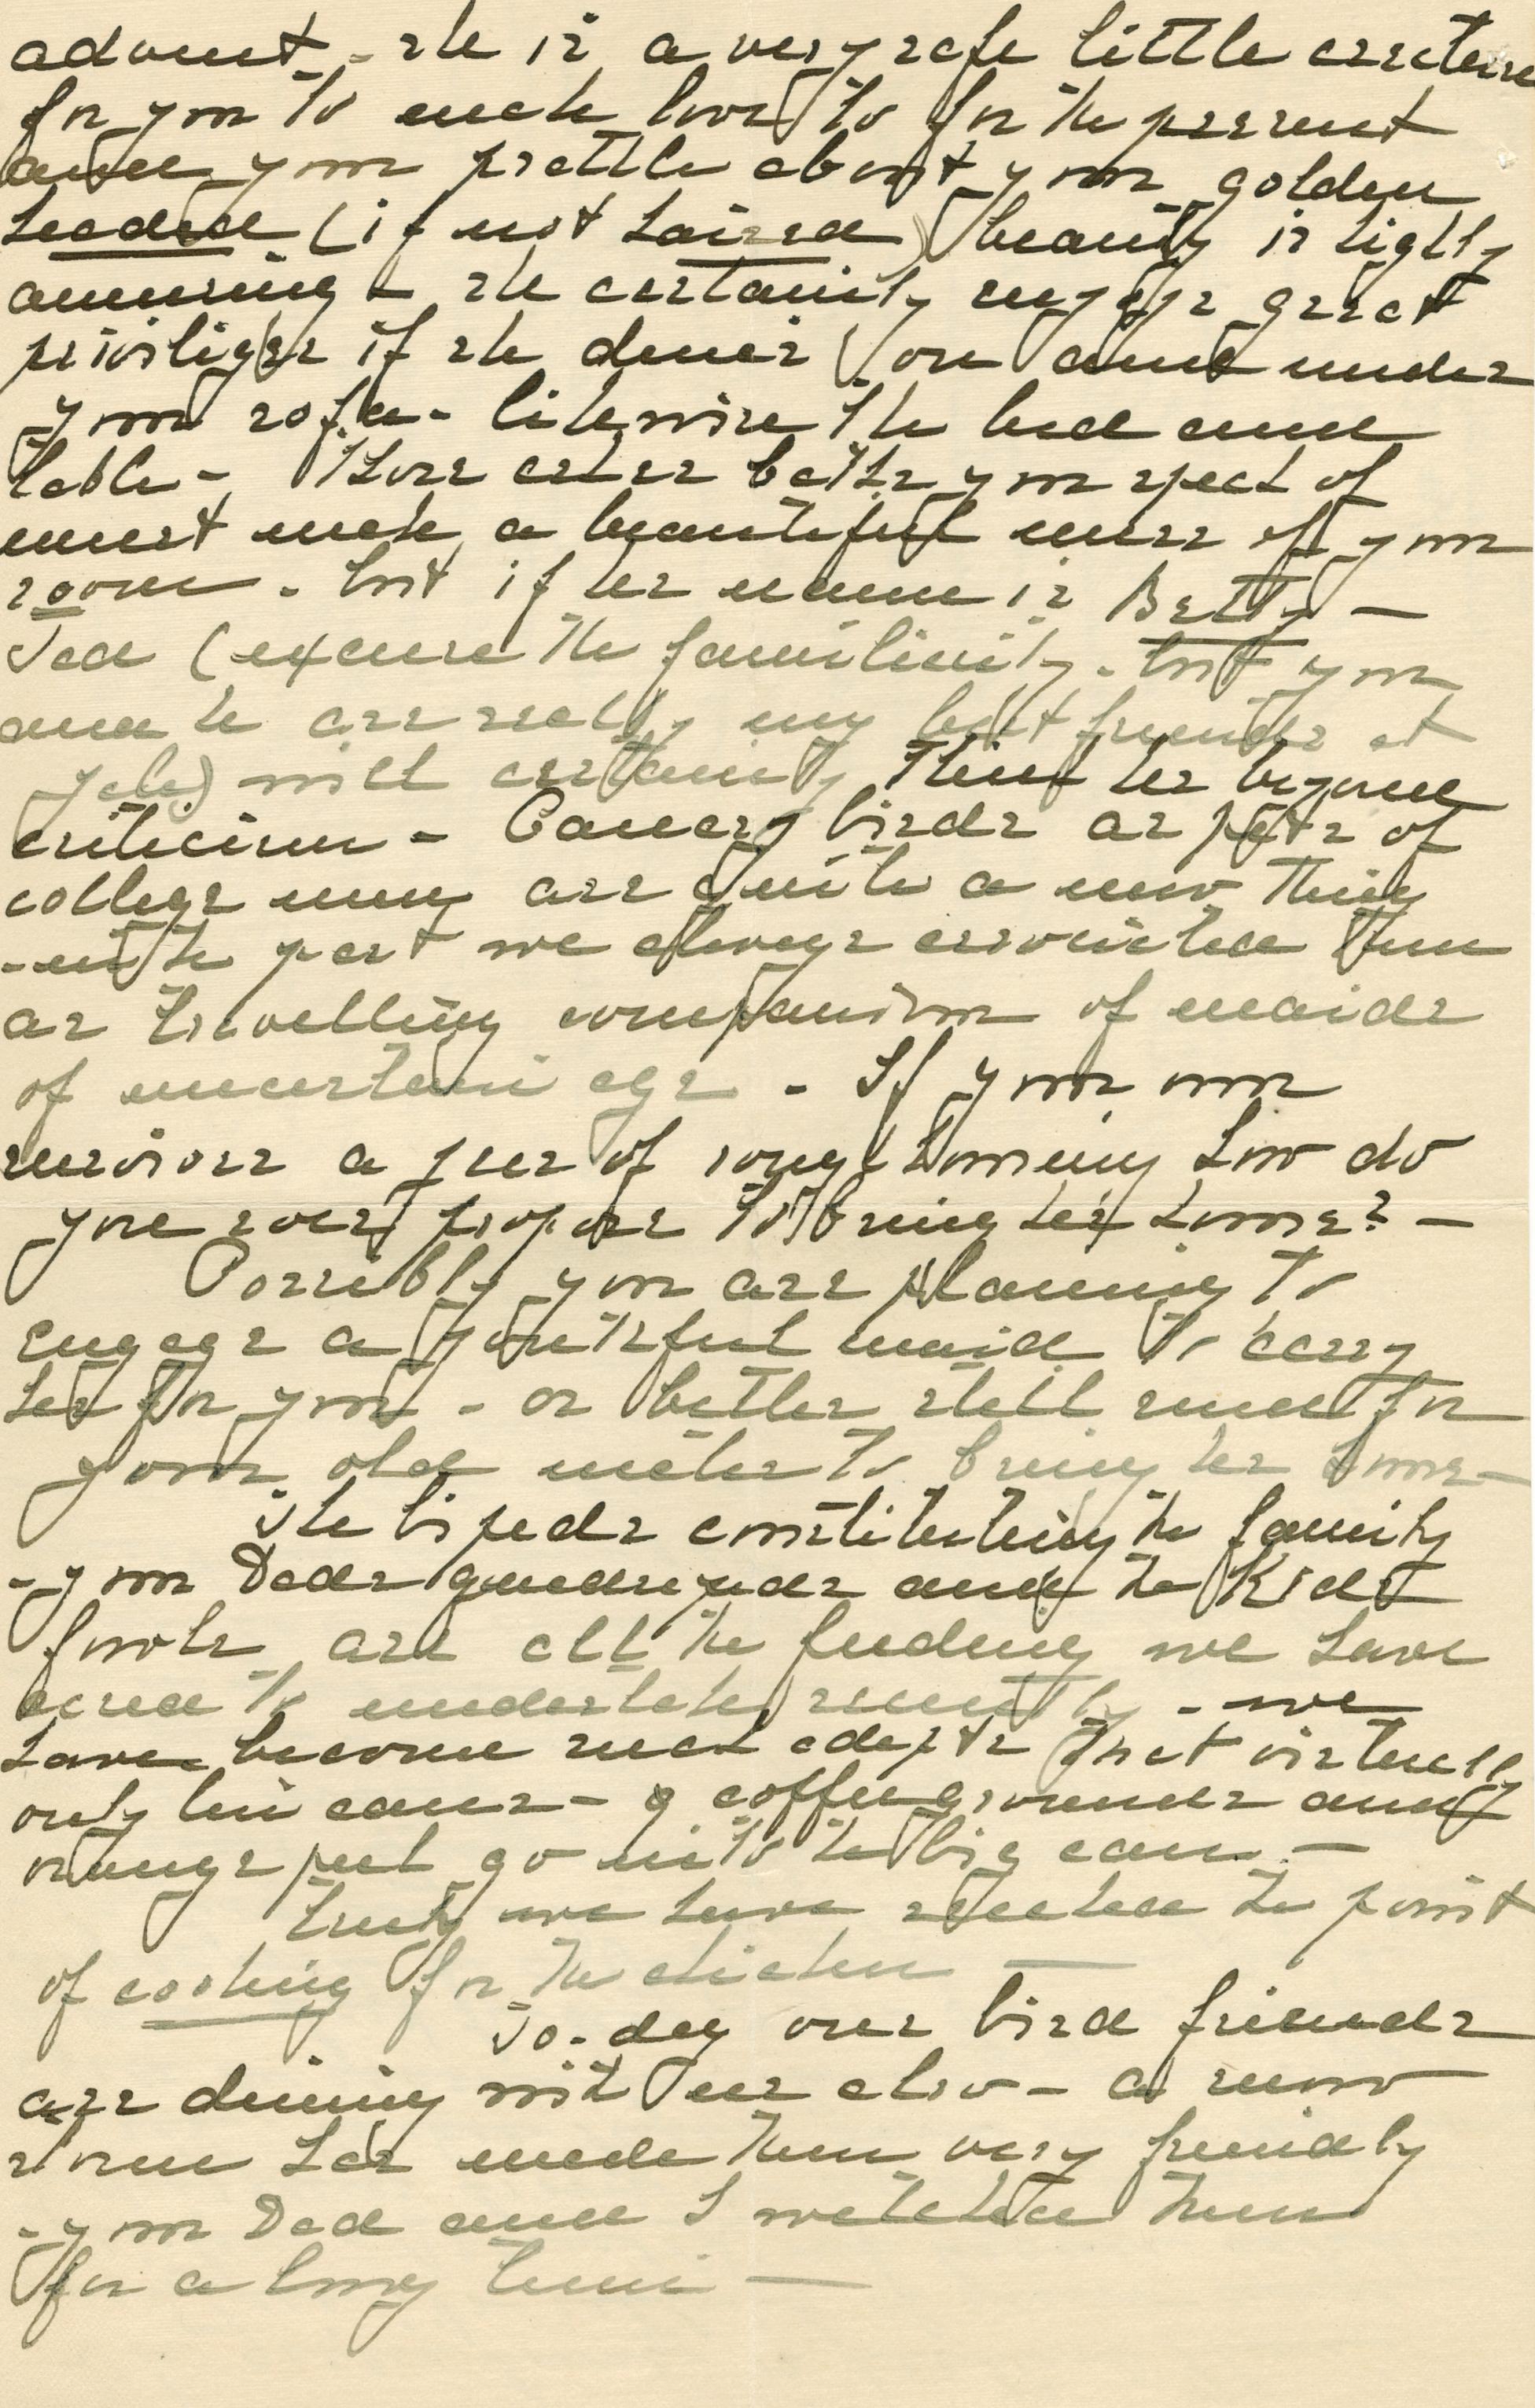 advent - she is a very safe little creature
for you to make love to for the present
and your prattle about your golden
headed (if not haired) beauty is highly
amusing - she certainly enjoys great
privileges if she dines on and under
your sofa - likewise the bed and
table - Those cake baths you speak of
must make a beautiful muss of your
room - but if her name is Betty -
Ted (excuse the familiarity - but you
and he are really my best friends at
Yale) will certainly think her beyond
criticism - Canary birds as pets of
college men are quite a new thing
- in the past we always associated them
as travelling companions of maids
of uncertain age - If your own
survives a year of rough housing how do
you ever propose to bring her home? -
Possibly you are planning to
engage a youthful maid to carry
her for you - or better still send for
your old mater to bring her home -
The bipeds constituting the family
- your Dad and the Kid
fowls are all the feeding we have
cared to undertake recently - we
have become such adepts that virtually
only tin cans - & coffee grounds and
orange peel go into the big can -
Truly we have reached the point
of cooking for the chicken -
To-day our bird friends
are dining with us also - a snow
storm has made them very friendly
- your Dad and I watched them
for a long time -